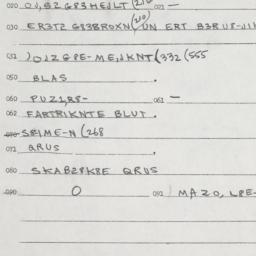 020 OJ,BZ GP3HEJLT (210 023 —
030 ER3TZ G83BROXN(210) UN ERT B3RU8-JIH
032 )OJZGPE-ME,JKNT(332 (555
050 BLAS
060 PUZ1RS- 061 —
062 FARTRIKNTE BLUT .
070 SEIME-N (268
071 QRUS
080 SKABZPKBE QRUS
090 O 092 MAZO, LPE-